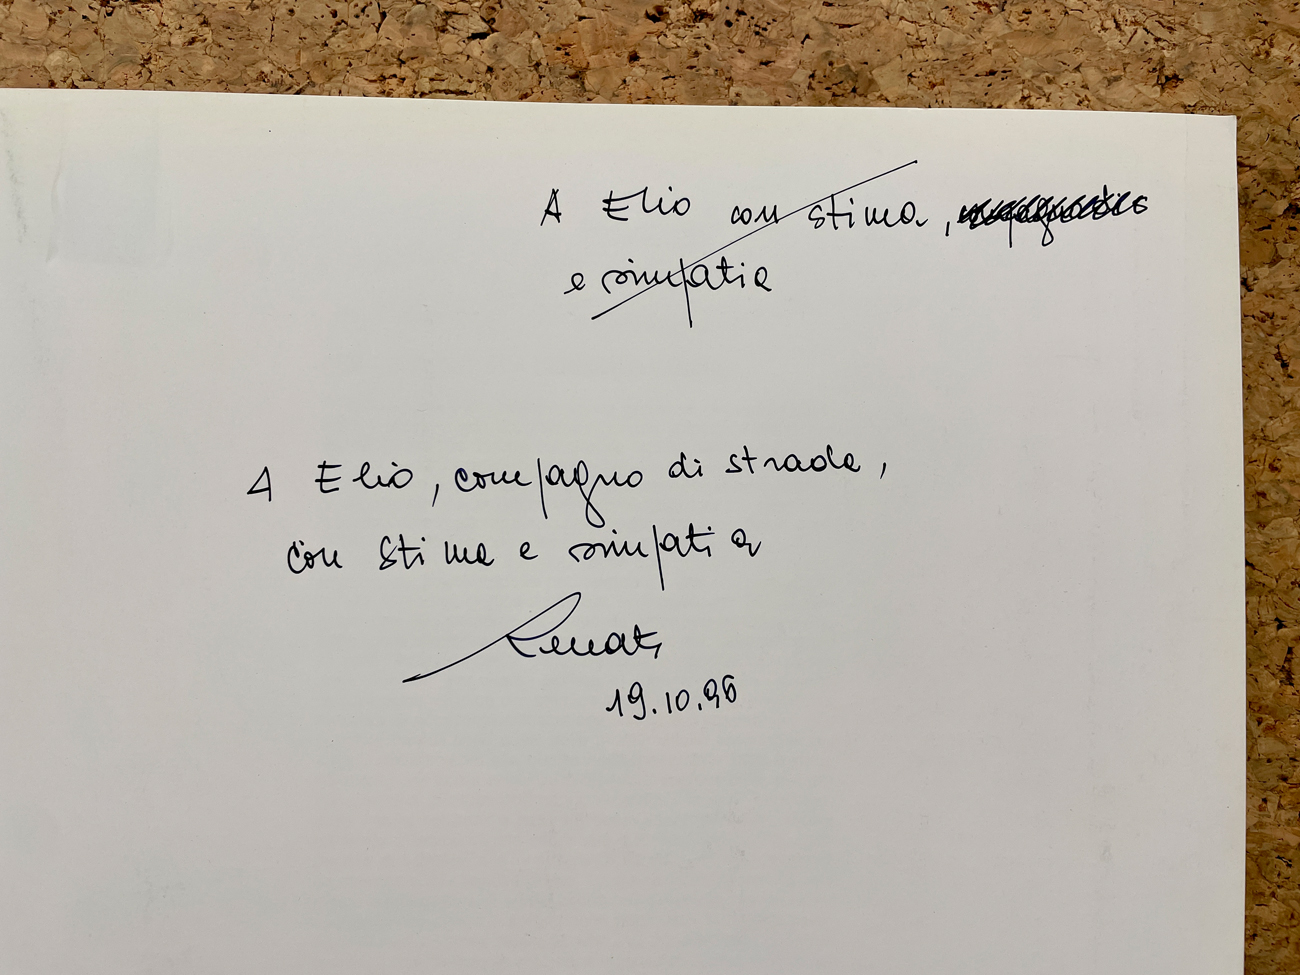 A Elio con stima,
e simpatia
A Elio, compagno di strada,
con stima e simpatia
Renato
19.10.96